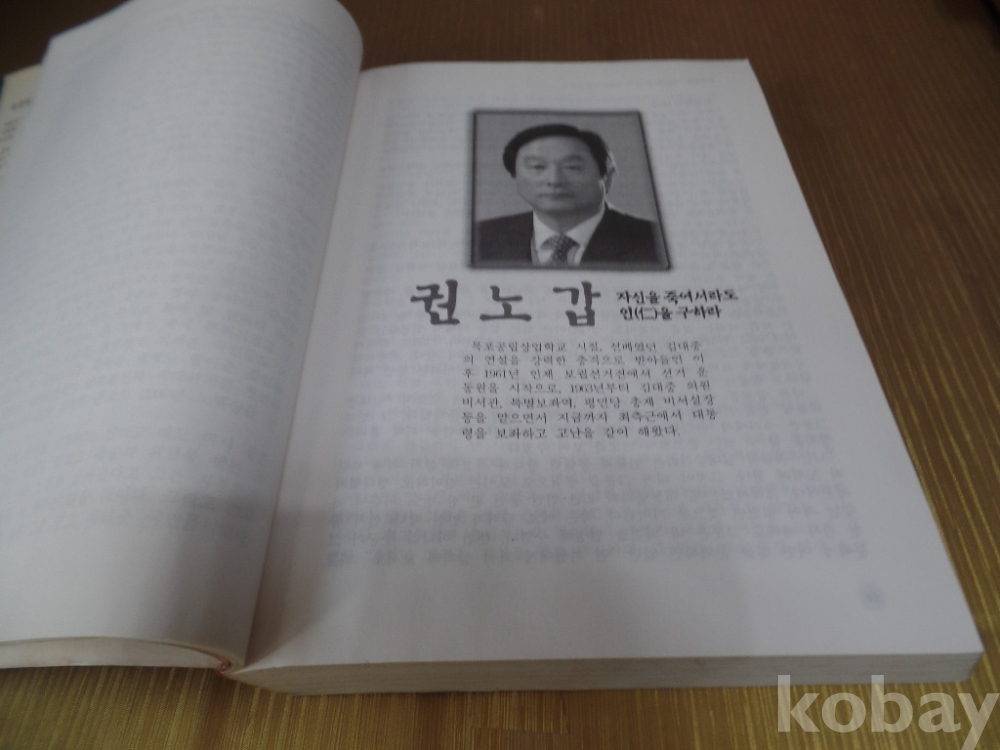 권노갑
자신을 죽여서라도
인(仁)을 구하라
목포공립상업학교 시절, 선배였던 김대중
의 연설을 강력한 충격으로 받아들인 이
후 1961년 인제 보궐선거전에서 선거 운
동원을 시작으로, 1963년부터 김대중 의원
비서관, 특별보좌역, 평민당 총재 비서실장
등을 맡으면서 지금까지 최측근에서 대통
령을 보좌하고 고난을 같이 해왔다.
kobay